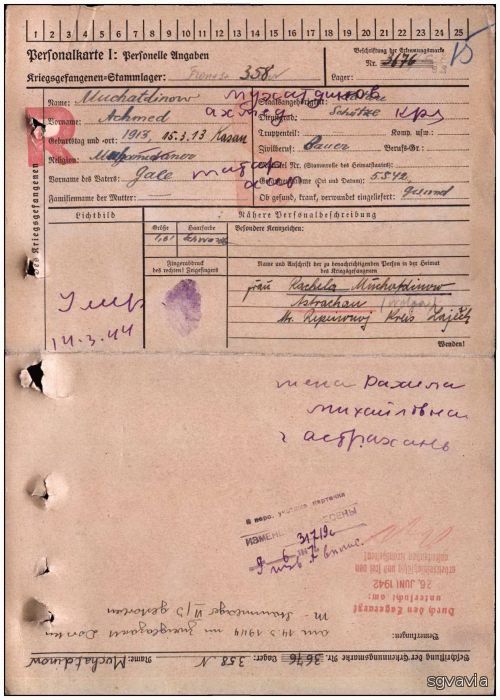 1 2 3 4 5 6 7 8 9 10 11 12 13 14 15 16 17 18 19 20 21 22 23 24 25
Personalkarte I: Personelle Angaben
Kriegsgefangenen-Stammlager: 358
Beschriftung der Erkennungsmarke
Nr. 3676
Lager:
15
des Kriegsgefangenen
Name: Muchatdinow
Vorname: Achmed
Geburtstag und -ort: 1913, 15.3.13 Kasan
Religion:
Vorname des Vaters: Gale
Familienname der Mutter:
Мухатдинов
Ахмед
татар
Staatsangehörigkeit:
Dienstgrad: Schütze
кра
Truppenteil: Komp. usw.:
Zivilberuf: Bauer Berufs-Gr.:
Matrikel Nr. (Stammrolle des Heimatstaates):
Gefangennahme (Ort und Datum): 5.5.42,
Ob gesund, krank, verwundet eingeliefert: gesund
Lichtbild
Nähere Personalbeschreibung
Größe
Haarfarbe
Besondere Kennzeichen:
1,61 schwarz
Fingerabdruck
des rechten! Zeigefingers
Name und Anschrift der zu benachrichtigenden Person in der Heimat
des Kriegsgefangenen
Frau Rachela Muchatdinow
Astrachan
Kreis
Умер
14.3.44
Wenden!
жена Рахила
Михайловна
г Астрахань
В перс. учетная карточка
ИЗМЕНЕНИЯ ВНЕСЕНЫ
Durch den Lagerarzt
untersucht am:
26. JUNI 1942
Bemerkungen:
am 14.3.1944 im gestorben
M-Stammlager VI/
Name: Muchatdinow
Lager: 358 N
Beschriftung der Erkennungsmarke Nr. 3676
sgvavia